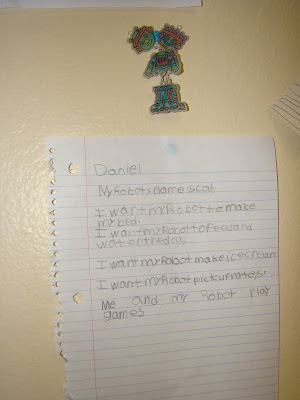 Daniel
My Robots name is cat.
I want my Robot to make
my bed.
I want my Robot to feed and
wat er the dog.
I want my Robot make ice cream
I want my Robot pick up my toys.
Me and my Robot play
games